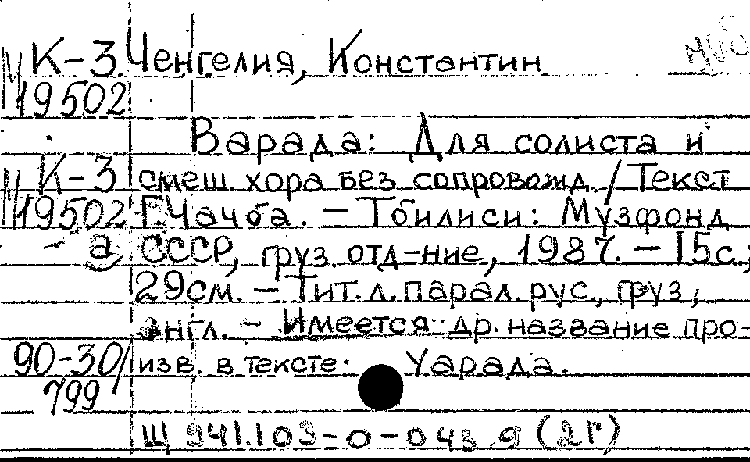 М К-3 Ченгелия, Константин муз
19502
Варада: Для солиста и
М К-3 смеш. хора без сопровожд. / Текст
19502 Г. Чачба. — Тбилиси: Музфонд
-а СССР, груз. отд-ние, 1987. — 15 с.;
29 см. — Тит. л. парал. рус., груз.,
англ. — Имеется др. название про-
90-30/ изв. в тексте: Уарада.
799
Щ 941.103-0-043.9 (2Г)